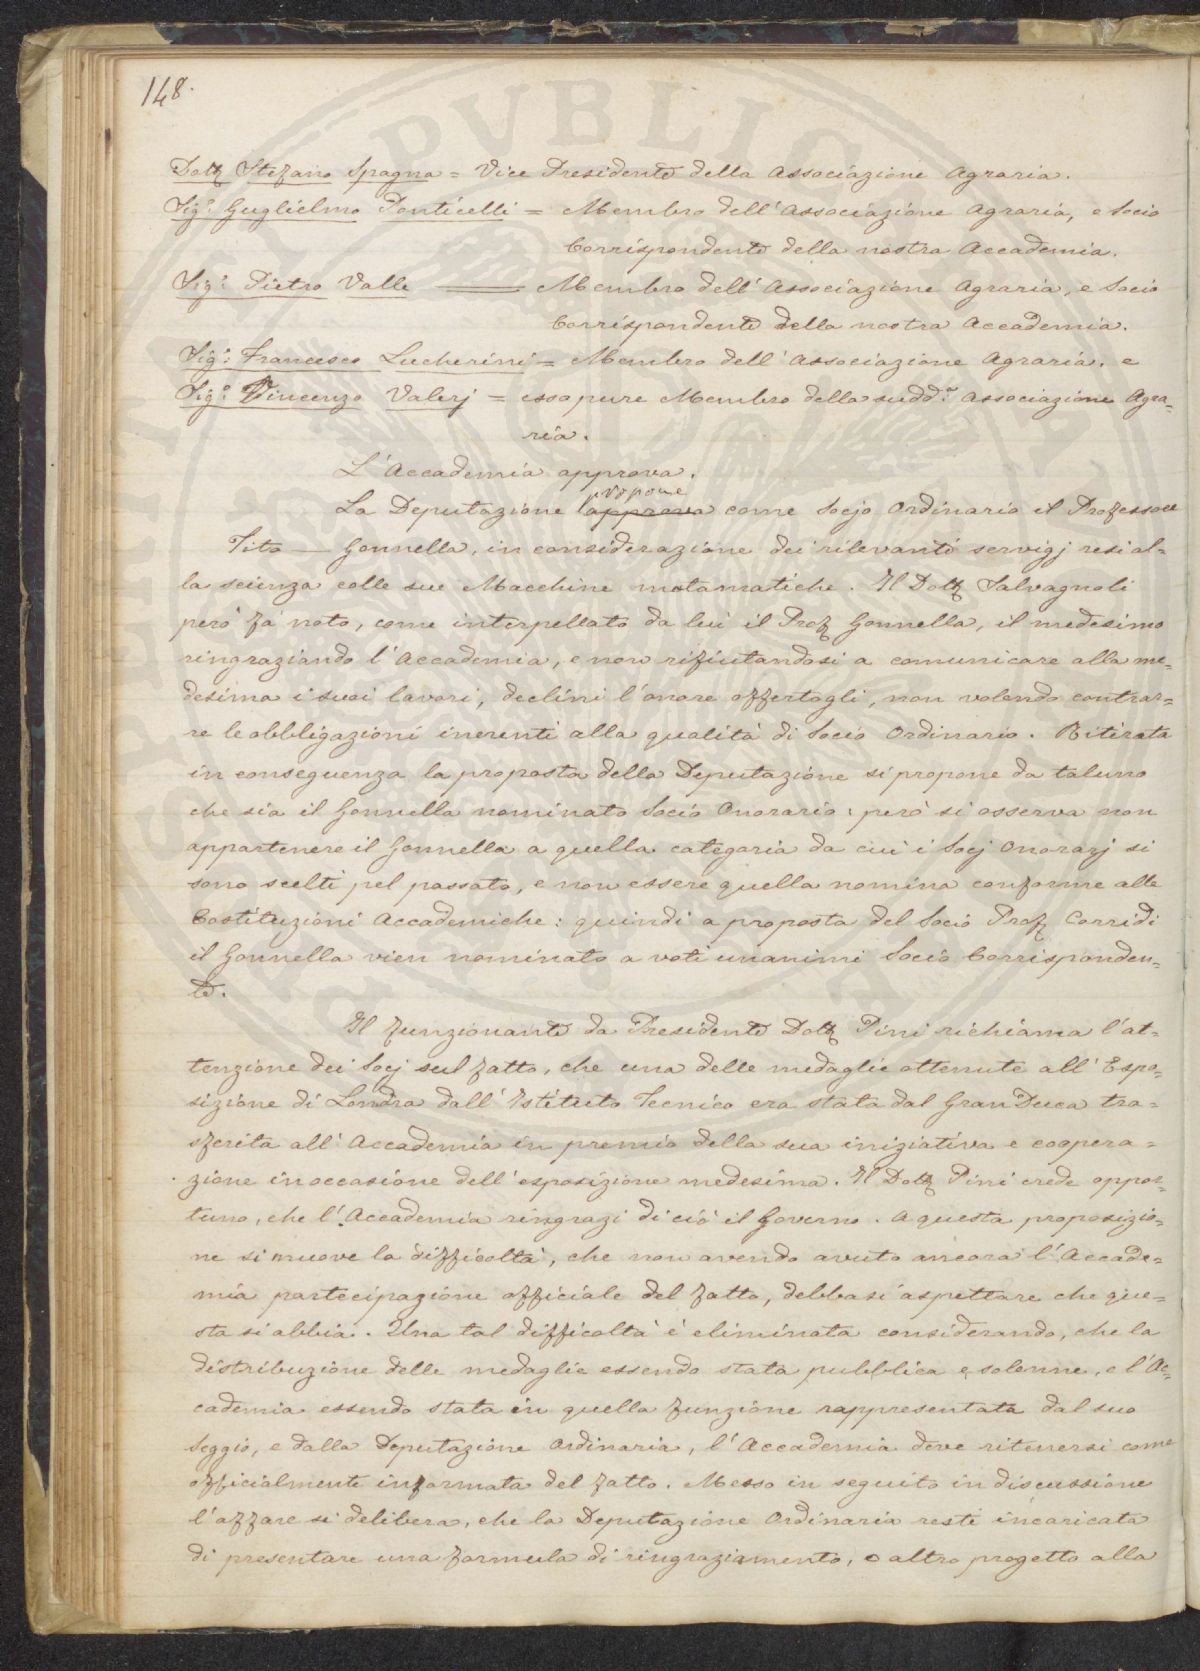 148.
Dott Stefano Spagna = Vice Presidente della Associazione Agraria.
Sig.r Guglielmo Ponticelli = Membro dell'Associazione Agraria, e Socio
Corrispondente della nostra Accademia.
Sig.r Pietro Valle — Membro dell'Associazione Agraria, e Socio
Corrispondente della nostra Accademia.
Sig.r Francesco Lucherini = Membro dell'Associazione Agraria. e
Sig.r Vincenzo Valerj = esso pure Membro della sudd.a Associazione Agra=
ria.
L'Accademia approva.
propone
La Deputazione approva come Socio Ordinario il Professore
Tito — Gonnella, in considerazione dei rilevanti servigj resi al=
la scienza colle sue Macchine matamatiche. Il Dott Salvagnoli
però fà noto, come interpellato da lui il Prof Gonnella, il medesimo
ringraziando l'Accademia, e non rifiutandosi a comunicare alla me=
desima i suoi lavori, declini l'onore offertogli, non volendo contrar=
re le obbligazioni inerenti alla qualità di Socio Ordinario. Ritirata
in conseguenza la proposta della Deputazione si propone da taluno
che sia il Gonnella nominato Socio Onorario: però si osserva non
appartenere il Gonnella a quella categoria da cui i Socj Onorarj si
sono scelti pel passato, e non essere quella nomina conforme alle
Costituzioni Accademiche: quindi a proposta del Socio Prof Corridi
il Gonnella vien nominato a voti unanimi Socio Corrisponden=
te.
Il funzionante da Presidente Dott Pini richiama l'at=
tenzione dei Socj sul fatto, che una delle medaglie ottenute all'Espo=
sizione di Londra dall'Istituto Tecnico era stata dal Gran Duca tra=
sferita all'Accademia in premio della sua iniziativa e coopera=
zione in occasione dell'esposizione medesima. Il Dott Pini crede oppor=
tuno, che l'Accademia ringrazi di ciò il Governo. A questa proposizio=
ne si muove la difficoltà, che non avendo avuto ancora l'Accade=
mia partecipazione officiale del fatto, debbasi aspettare che que=
sta si abbia. Una tal difficoltà è eliminata considerando, che la
distribuzione delle medaglie essendo stata pubblica e solenne, e l'Ac=
cademia essendo stata in quella funzione rappresentata dal suo
Seggio, e dalla Deputazione Ordinaria, l'Accademia deve ritenersi come
officialmente informata del fatto. Messo in seguito in discussione
l'affare si delibera, che la Deputazione Ordinaria resti incaricata
di presentare una formula di ringraziamento, o altro progetto alla